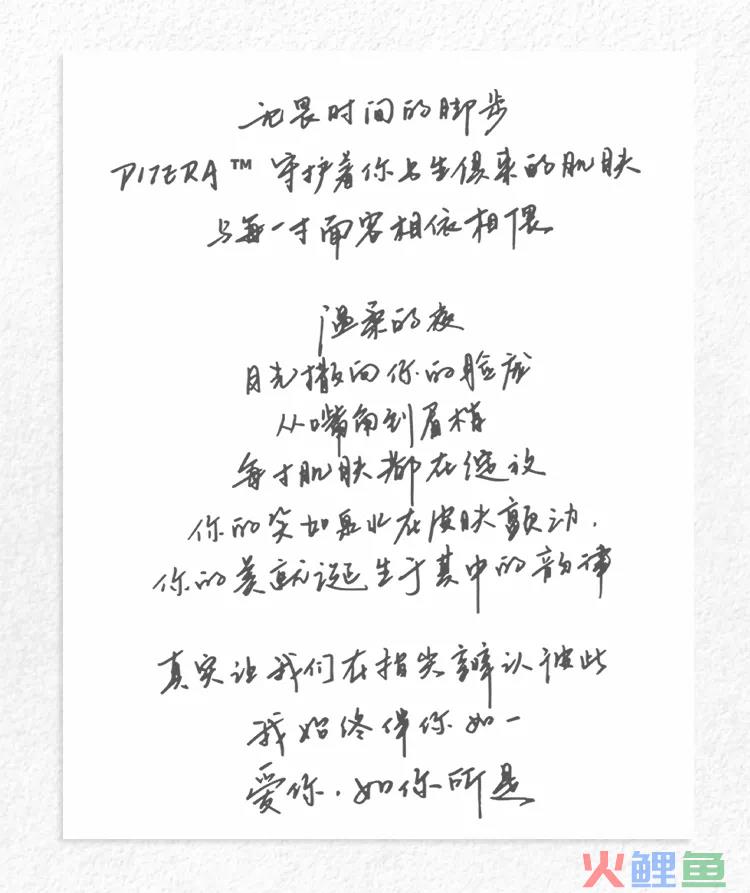 无畏时间的脚步
PITERA™ 守护着你与生俱来的肌肤
与每一寸面容相依相偎
温柔的夜
目光撒向你的脸庞
从嘴角到眉梢
每寸肌肤都在绽放
你的笑如泉水在皮肤颤动，
你的美就诞生于其中的韵律
真实让我们在指尖辨认彼此
我始终伴你如一
爱你，如你所是
火鲤鱼